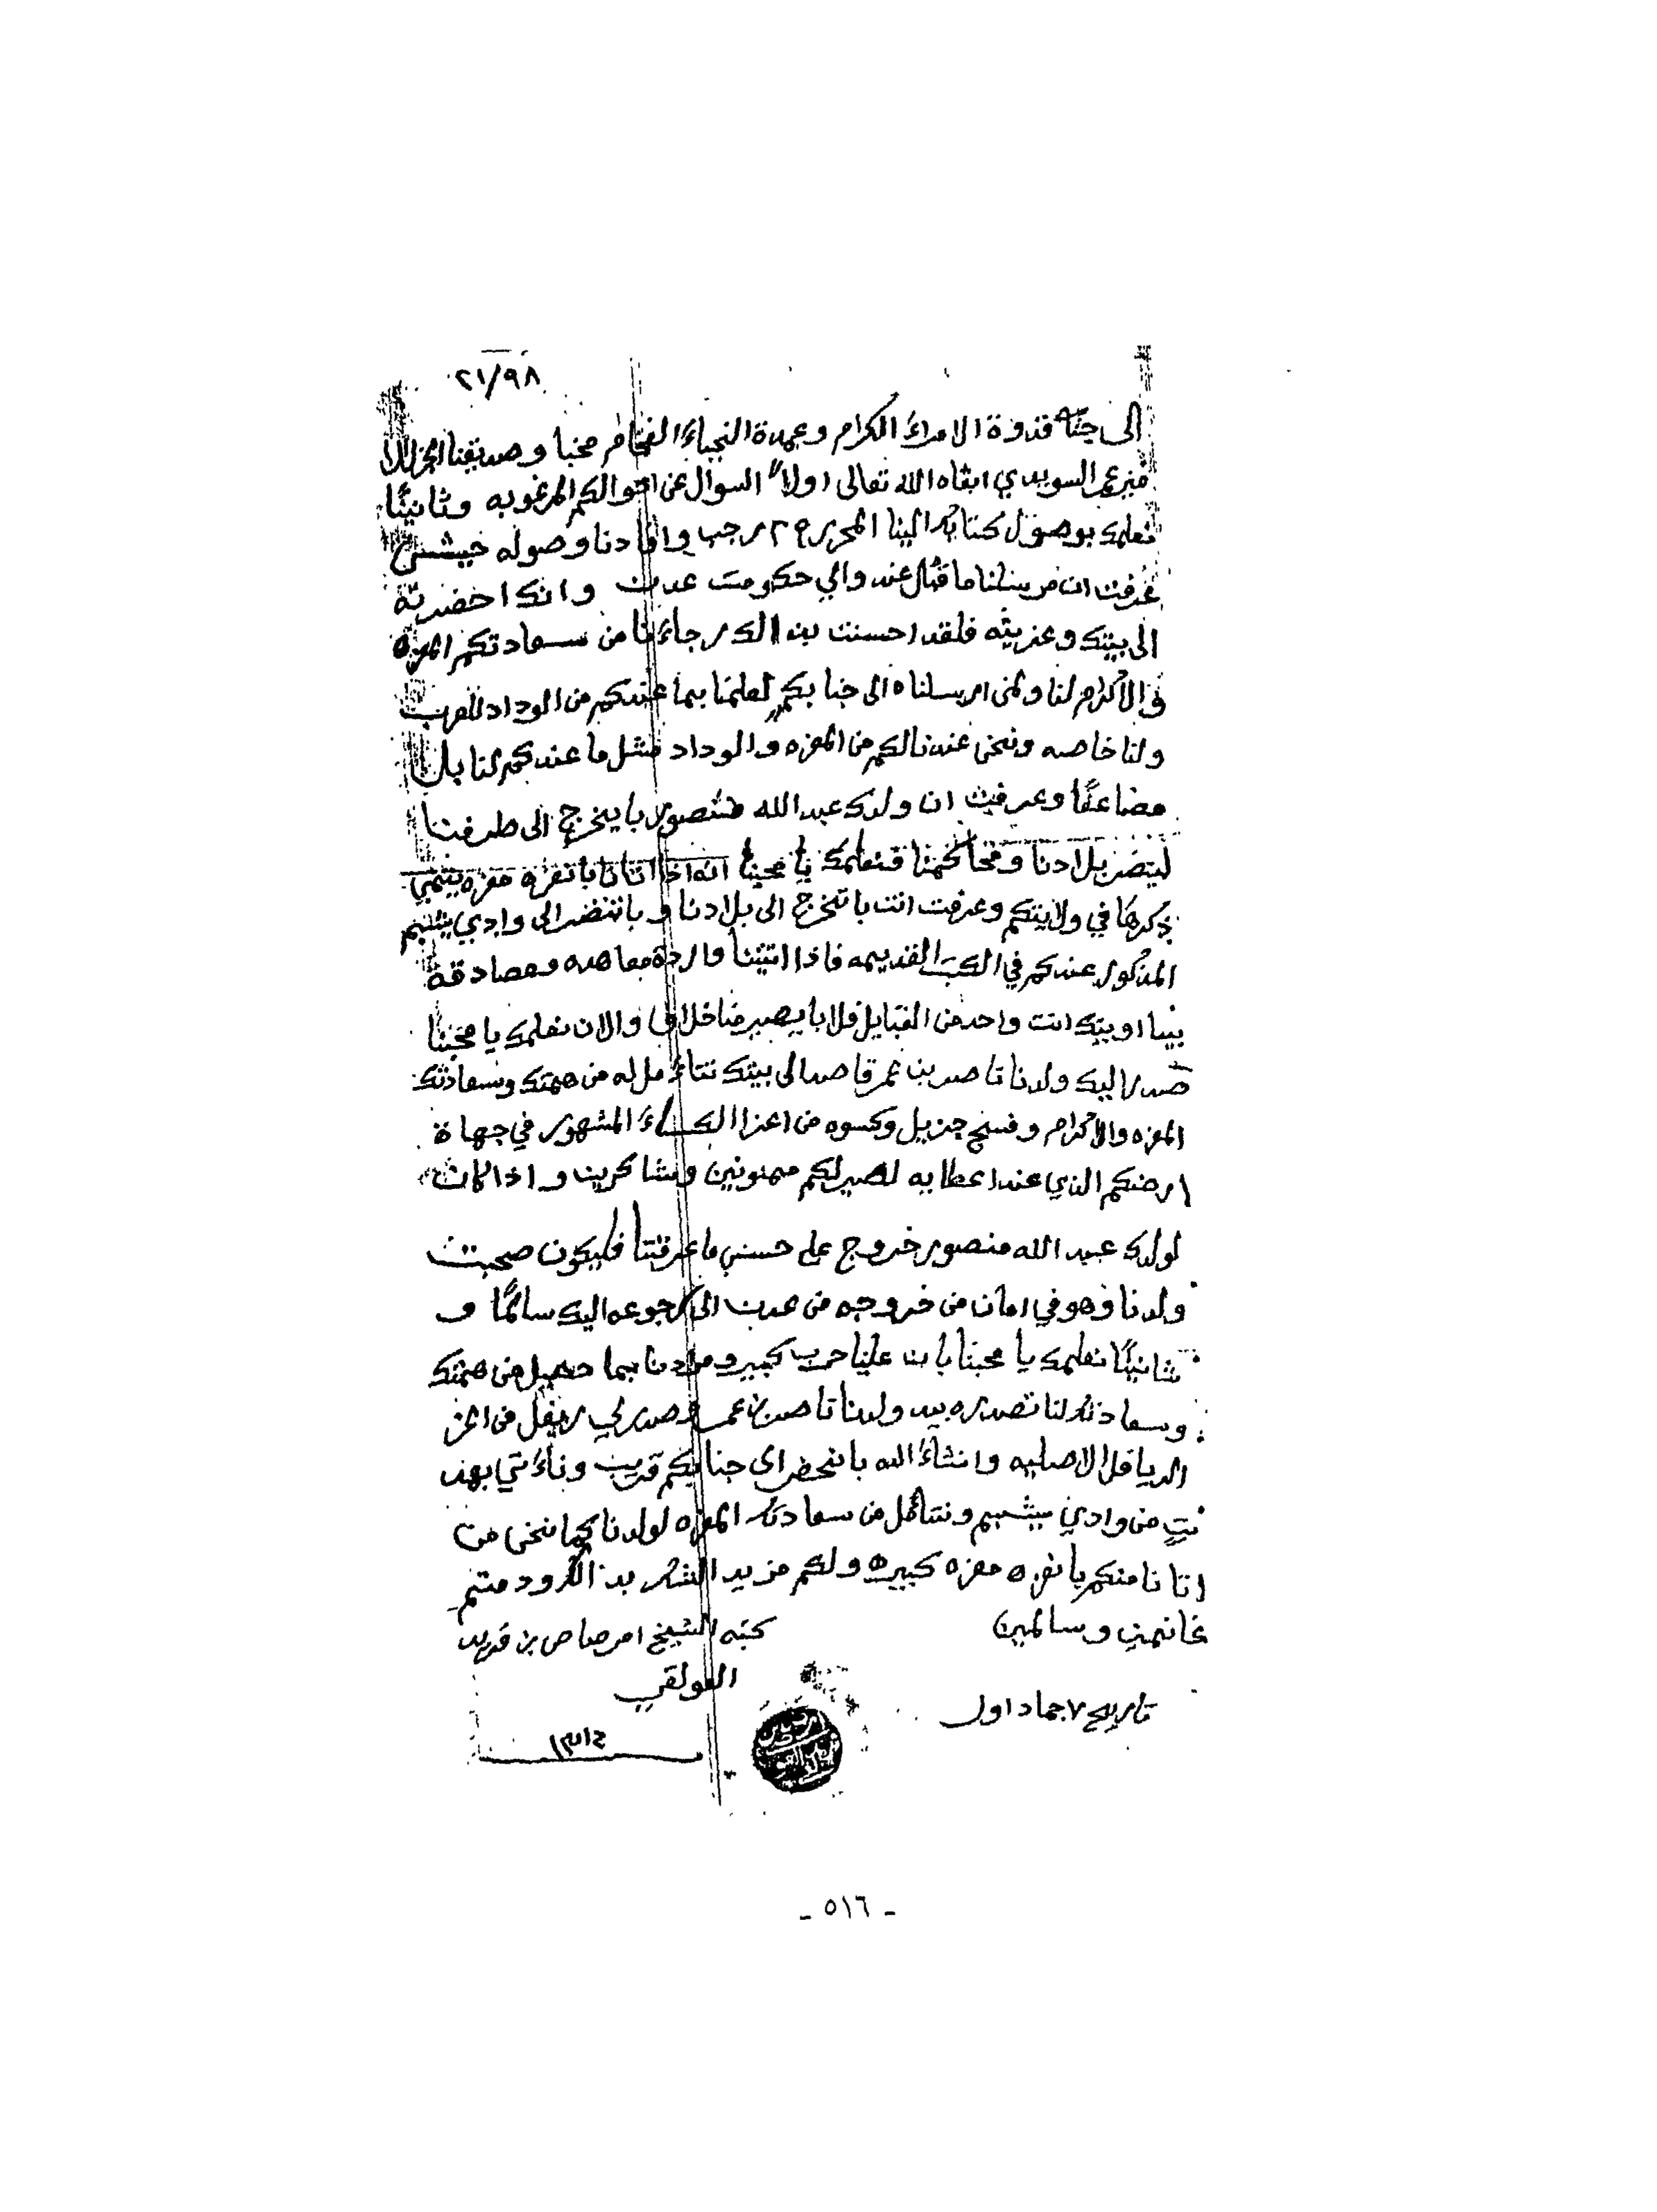 ٢١/٩٨
الى جنب قدوة الامراء الكرام وعمدة النجباء الفخام محبنا وصديقنا
السويدي ابقاه الله تعالى اولاً السوال عن احوالكم المرغوبه وثانيًا
نعلمك بوصول كتابك الينا المحرر ٢٩ رجب وافادنا وصوله
عرفت ان مرسلنا ما قبل عند والي حكومت عدن وانك احضرته
الى بيتك وعزيته فلقد احسنت بذالك رجاءنا من سعادتكم المعزه
والاكرام لنا ولمن ارسلناه الى جنابكم لعلمنا بما عندكم من الوداد للعرب
ولنا خاصه ونحن عندنا لكم من المعزه والوداد مثل ما عندكم لنا بل
مضاعفًا وعرفت ان ولدك عبدالله منصور با يخرج الى طرفنا
لينضر بلادنا فنعلمك يا محبنا انه اذا اتانا با نعزه معزه
ذكرها في ولايتكم وعرفت انت با تخرج الى بلادنا وبا تنضر الى وادي يشبم
المذكور عندكم في الكتب القديمه فاذا اتيتنا واردة معاهده ومصادقة
بيننا او بينك انت واحد من القبايل فلا با يصير منا خلاف والان نعلمك يا محبنا
صدر اليك ولدنا ناصر بن عمر قاصد الى بيتك نتاءمل له من همتك وسعادتك
المعزه والاكرام وفسح جزيل وكسوه من اعزا الكساء المشهور في جهاة
ارضكم الذي عند اعطايه لصير لكم ممنونين وشاكرين واذا كان
لولدك عبدالله منصور خروج على حسب ما عرفتنا فليكون صحبت
ولدنا وهو في امان من خروجه من عدن الى رجوعه اليك سالمًا و
ثانيًا نعلمك يا محبنا بان علينا حرب كبير ومرادنا بما حصل من همتك
وسعادتك لنا تصدره بيد ولدنا ناصر بن عمر وصدر لي ريفل من اعز
الريافل الاصليه وانشاء الله با نحضر اى جنابكم قريب وناءتي بهذ
من وادي يشبم ونتاءمل من سعادتك المعزه لولدنا كما نحن من
اتانا منكم با نعزه معزه كبيره ولكم مزيد الشكر بذالك ودمتم
غانمين وسالمين
كتبه الشيخ امرصاص بن فريد
العولقي
تاريخ ٧ جماد اول
- ٥١٦ -